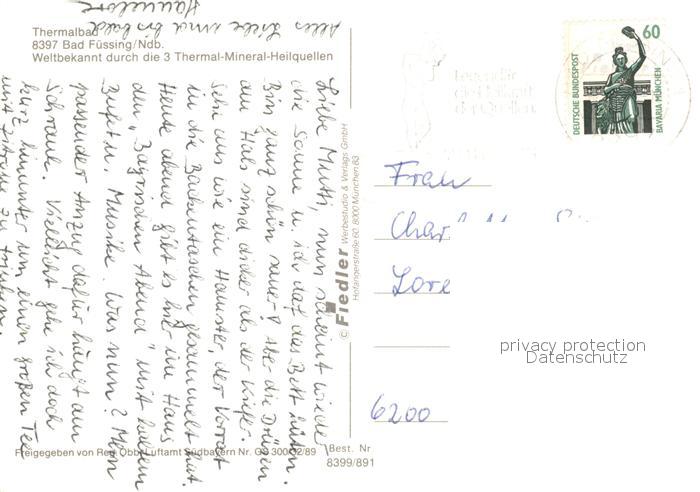 Thermalbad
8397 Bad Füssing/Ndb.
Weltbekannt durch die 3 Thermal-Mineral-Heilquellen
Liebe Mutti, nun scheint wieder
die Sonne u. ich darf das Bett hüten.
Bin ganz schön sauer! Aber die Drüsen
am Hals sind dicker als der Kiefer.
Sehe aus wie ein Hamster, der Vorrat
in die Backentaschen gesammelt hat.
Heute abend gibt es hier im Haus
den "Bayrischen Abend" mit kaltem
Bufett u. Musike. Was nun? Mein
passender Anzug dafür hängt am
Schrank. Vielleicht gehe ich doch
kurz hinunter um einen großen Tee
mit Zitrone zu trinken.
Alles Liebe und bis bald
Hannelore
© Fiedler Werbestudio & Verlags GmbH
Hofangerstraße 60, 8000 München 83
Freigegeben von Reg. Obb. Luftamt Südbayern Nr. GS 300 /89
Best. Nr
8399/891
der Quellen.
60
DEUTSCHE BUNDESPOST
BAVARIA MÜNCHEN
Frau
Char
Lore
6200
privacy protection
Datenschutz